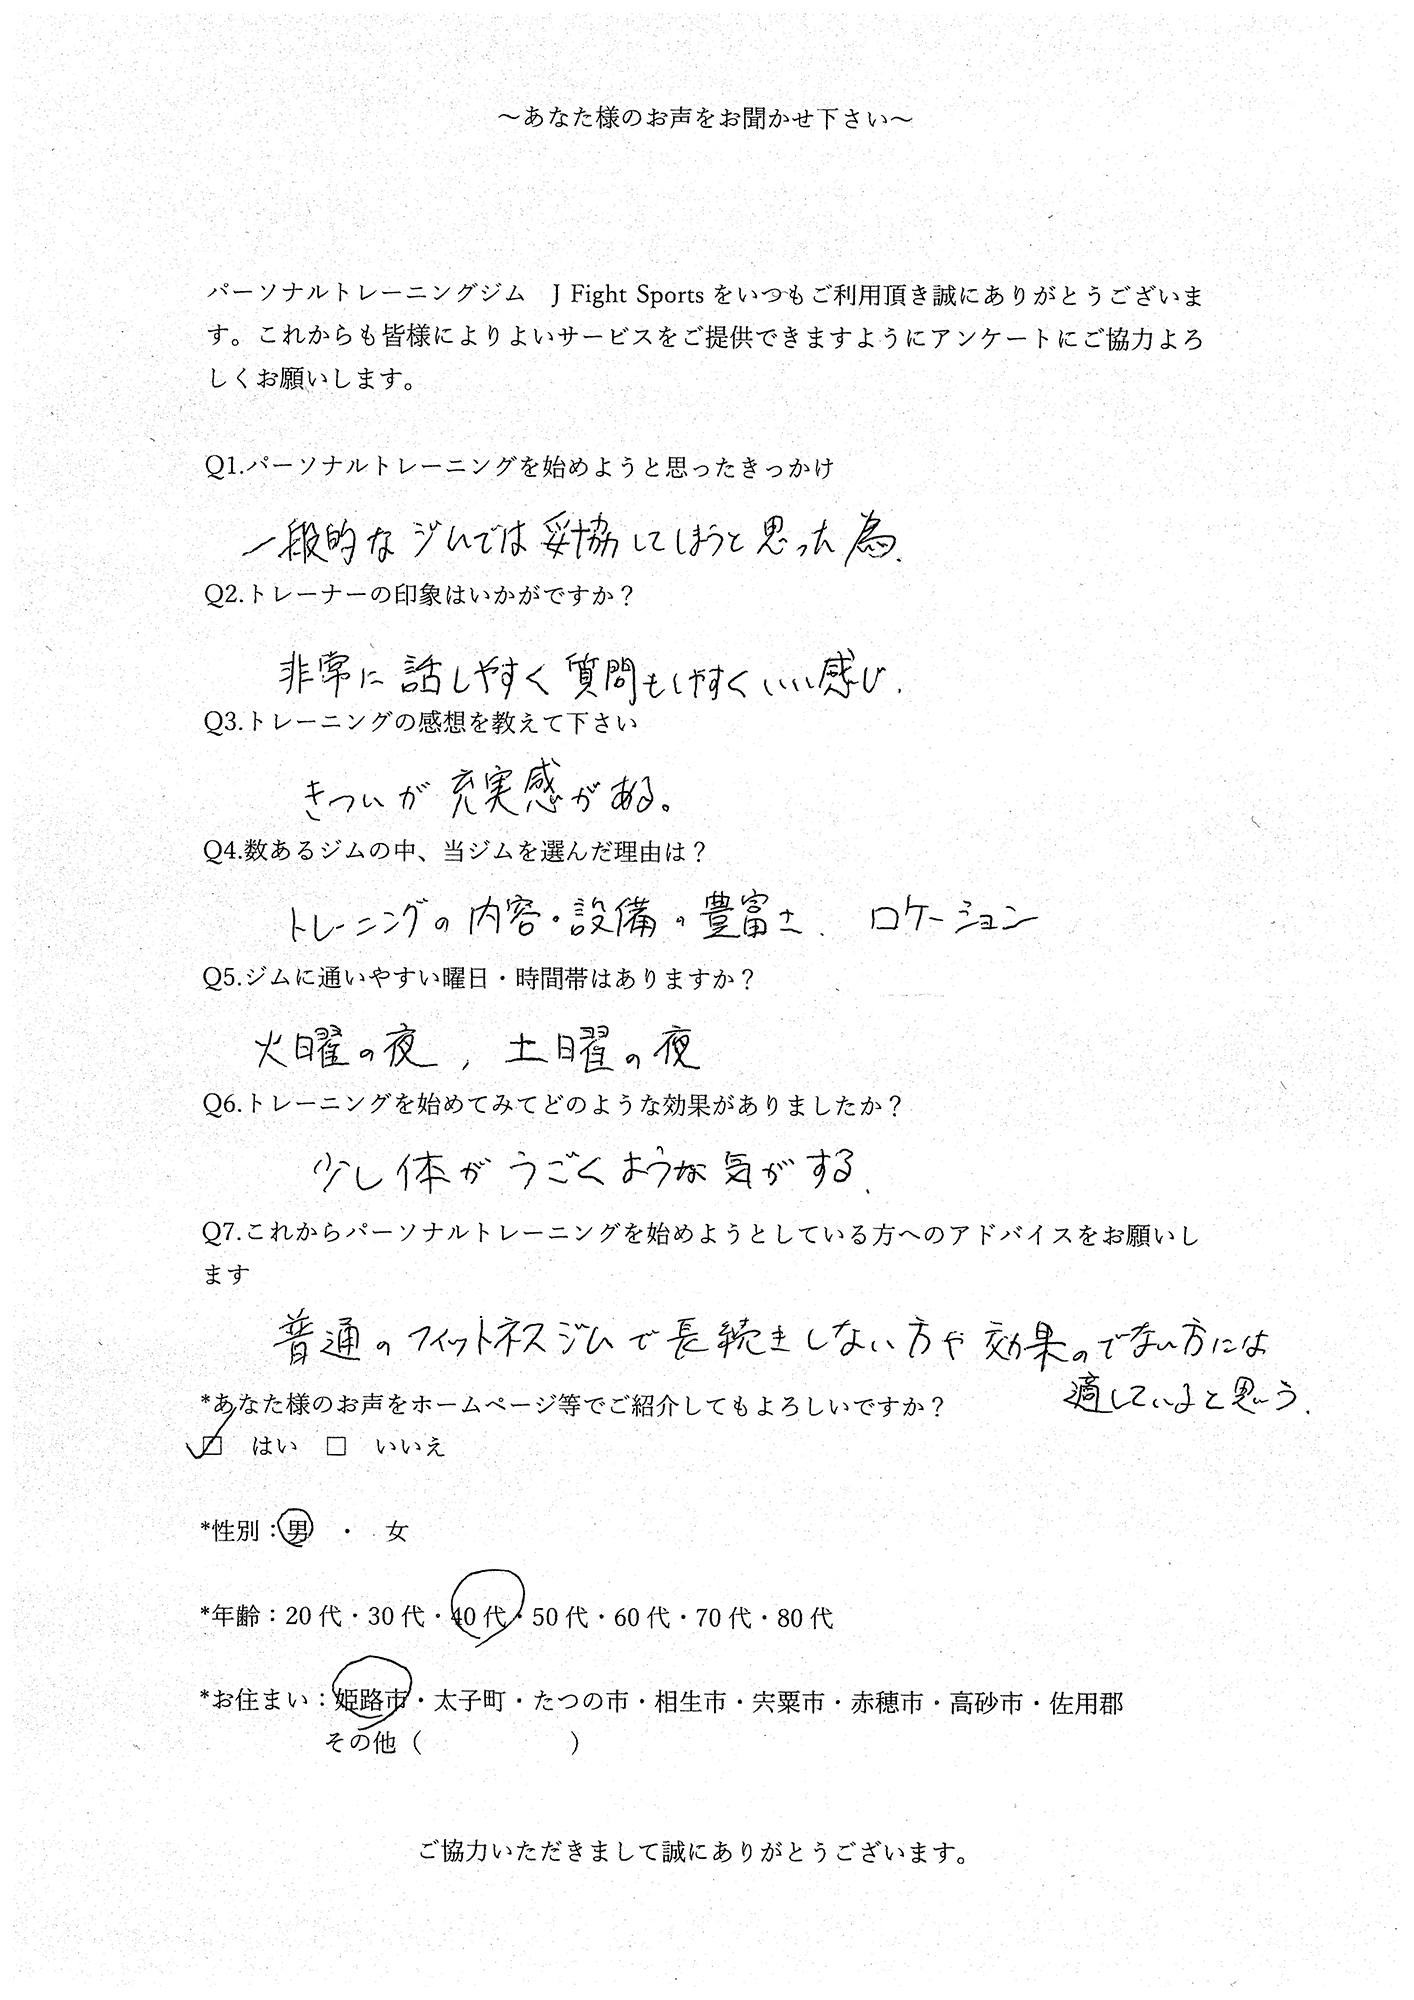 ～あなた様のお声をお聞かせ下さい～
パーソナルトレーニングジム　J Fight Sports をいつもご利用頂き誠にありがとうございま
す。これからも皆様によりよいサービスをご提供できますようにアンケートにご協力よろ
しくお願いします。
Q1.パーソナルトレーニングを始めようと思ったきっかけ
一般的なジムでは妥協してしまうと思った為.
Q2.トレーナーの印象はいかがですか？
非常に話しやすく質問もしやすくいい感じ.
Q3.トレーニングの感想を教えて下さい
きついが充実感がある。
Q4.数あるジムの中、当ジムを選んだ理由は？
トレーニングの内容・設備の豊富さ.　ロケーション
Q5.ジムに通いやすい曜日・時間帯はありますか？
火曜の夜 , 土日曜の夜
Q6.トレーニングを始めてみてどのような効果がありましたか？
少し体がうごくような気がする.
Q7.これからパーソナルトレーニングを始めようとしている方へのアドバイスをお願いし
ます
普通のフィットネスジムで長続きしない方や効果のでない方には
適していると思う.
*あなた様のお声をホームページ等でご紹介してもよろしいですか？
☑　はい　□　いいえ
*性別：男　・　女
*年齢：20 代・30 代・40 代・50 代・60 代・70 代・80 代
*お住まい：姫路市・太子町・たつの市・相生市・宍粟市・赤穂市・高砂市・佐用郡
その他（　　　　　　）
ご協力いただきまして誠にありがとうございます。